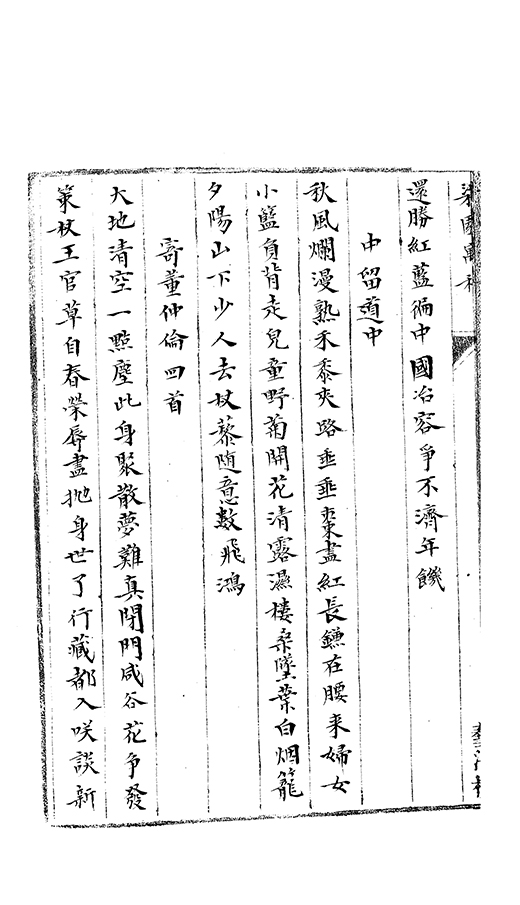 還勝紅藍徧中國冶容爭不濟年饑
中留道中
秋風爛漫熟禾黍夾路垂垂棗盡紅長鐮在腰來婦女
小籃負背走兒童野菊開花清露濕樓桑墜葉白烟籠
夕陽山下少人去杖藜随意數飛鴻
寄董仲倫四首
大地清空一點塵此身聚散夢難真閉門咸谷花争發
策杖王官草自春榮辱盡抛身世了行藏都入咲談新